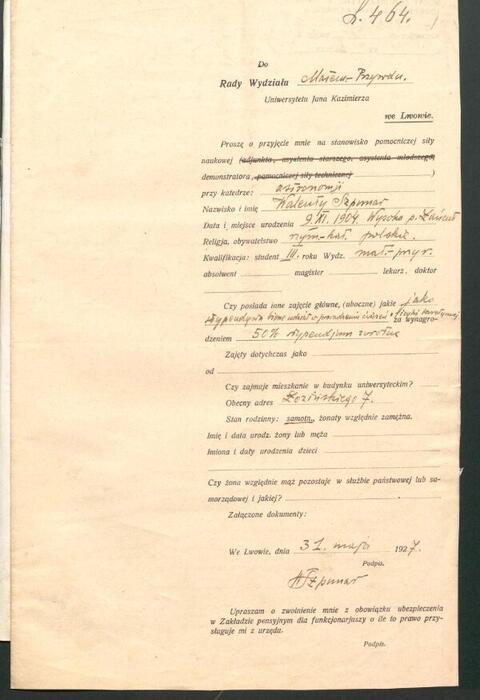 L. 464.
Do
Rady Wydziału Matem.-Przyrodn.
Uniwersytetu Jana Kazimierza
we Lwowie.
Proszę o przyjęcie mnie na stanowisko pomocniczej siły
naukowej (adjunkta, asystenta starszego, asystenta młodszego,
demonstratora, pomocniczej siły technicznej)
przy katedrze: astronomji
Nazwisko i imię Walenty Szpunar
Data i miejsce urodzenia 9. XI. 1904. Wysoka p. Łańcut
Religja, obywatelstwo rzym-kat. polskie.
Kwalifikacja: student III. roku Wydz. mat-przyr.
absolwent magister lekarz, doktor
Czy posiada inne zajęcie główne, (uboczne) jakie jako
stypendysta w prowadzeniu ćwiczeń z fizyki teoretycznej za wynagro-
dzeniem 50% stypendjum zwrotne
Zajęty dotychczas jako
od
Czy zajmuje mieszkanie w budynku uniwersyteckim?
Obecny adres Łozińskiego 7.
Stan rodzinny: samotn., żonaty względnie zamężna.
Imię i data urodz. żony lub męża
Imiona i daty urodzenia dzieci
Czy żona względnie mąż pozostaje w służbie państwowej lub sa-
morządowej i jakiej?
Załączone dokumenty:
We Lwowie, dnia 31. maja 1927.
Podpis.
WSzpunar
Upraszam o zwolnienie mnie z obowiązku ubezpieczenia
w Zakładzie pensyjnym dla funkcjonarjuszy o ile to prawo przy-
sługuje mi z urzędu.
Podpis.